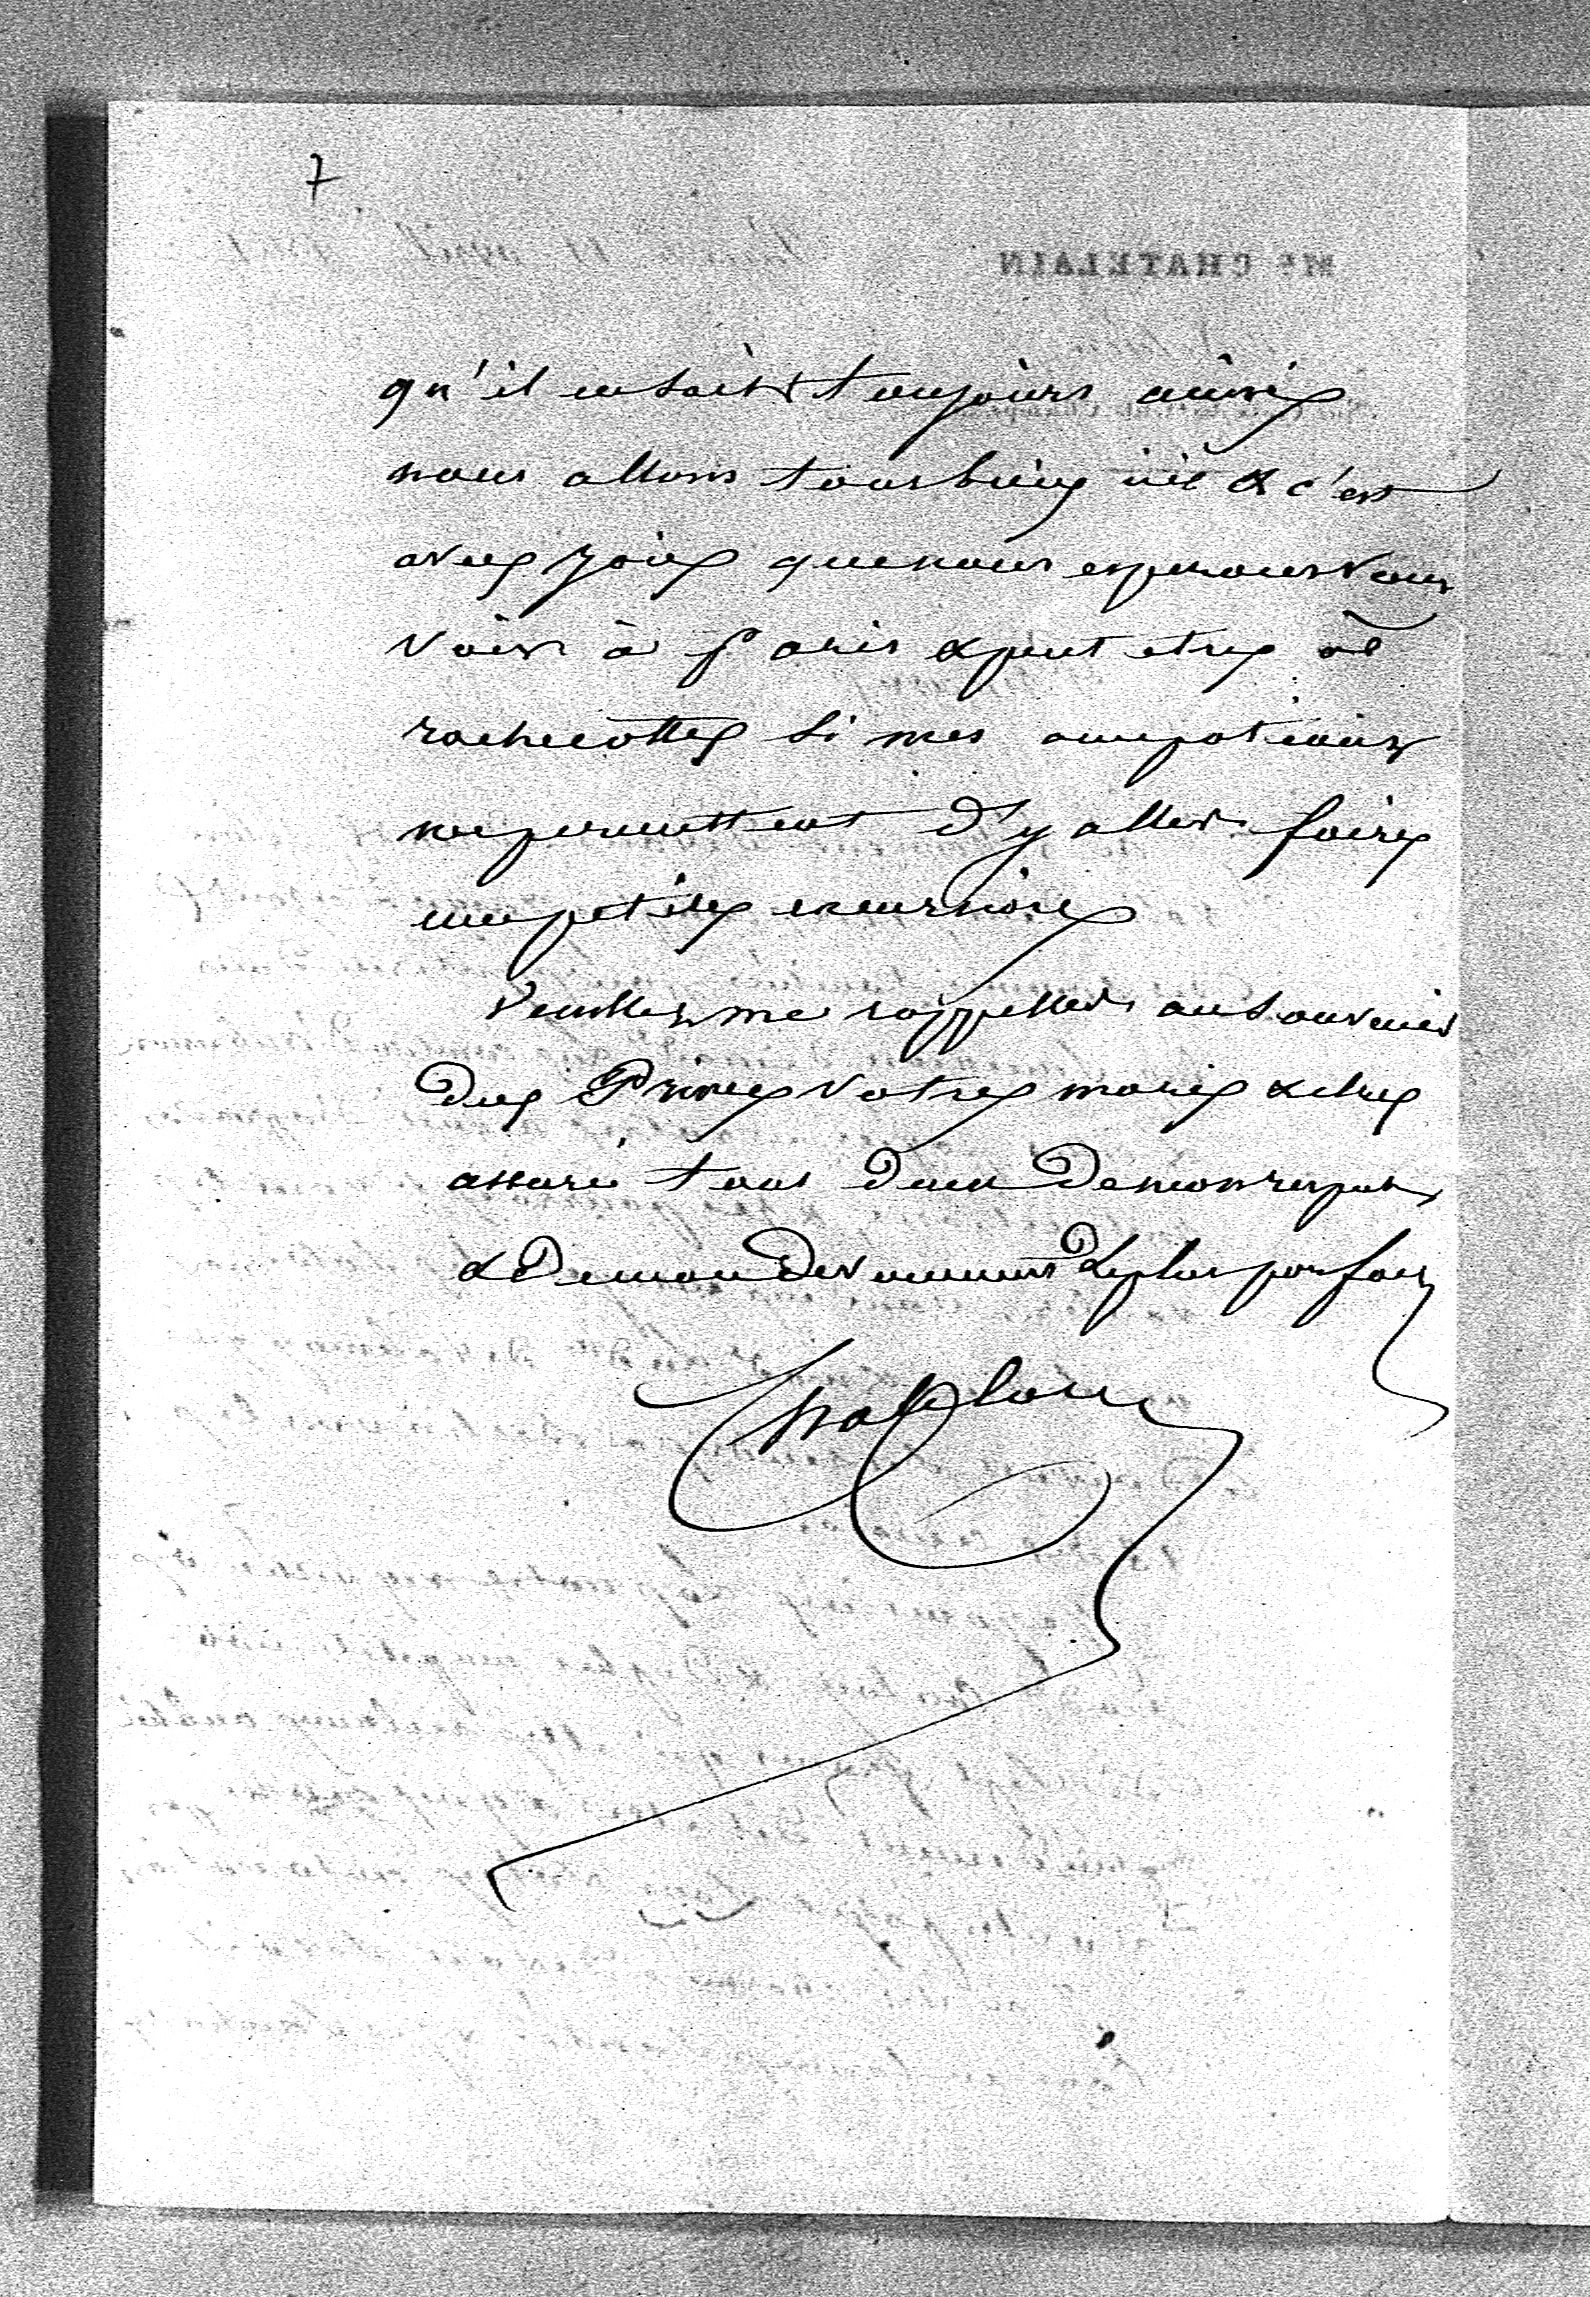 7
qu'il en soit toujours ainsi
nous allons tous bien ici & c'est
avec joie que nous esperons vous
voir à Paris & peut etre à
rochecotte si mes occupations
me permettent d'y aller faire
une petite excursion
Veuillez me rappeller au souvenir
du Prince votre mari & etre
assuré tous deux de mon respect
& de mon devouement le plus parfait
Chatelain